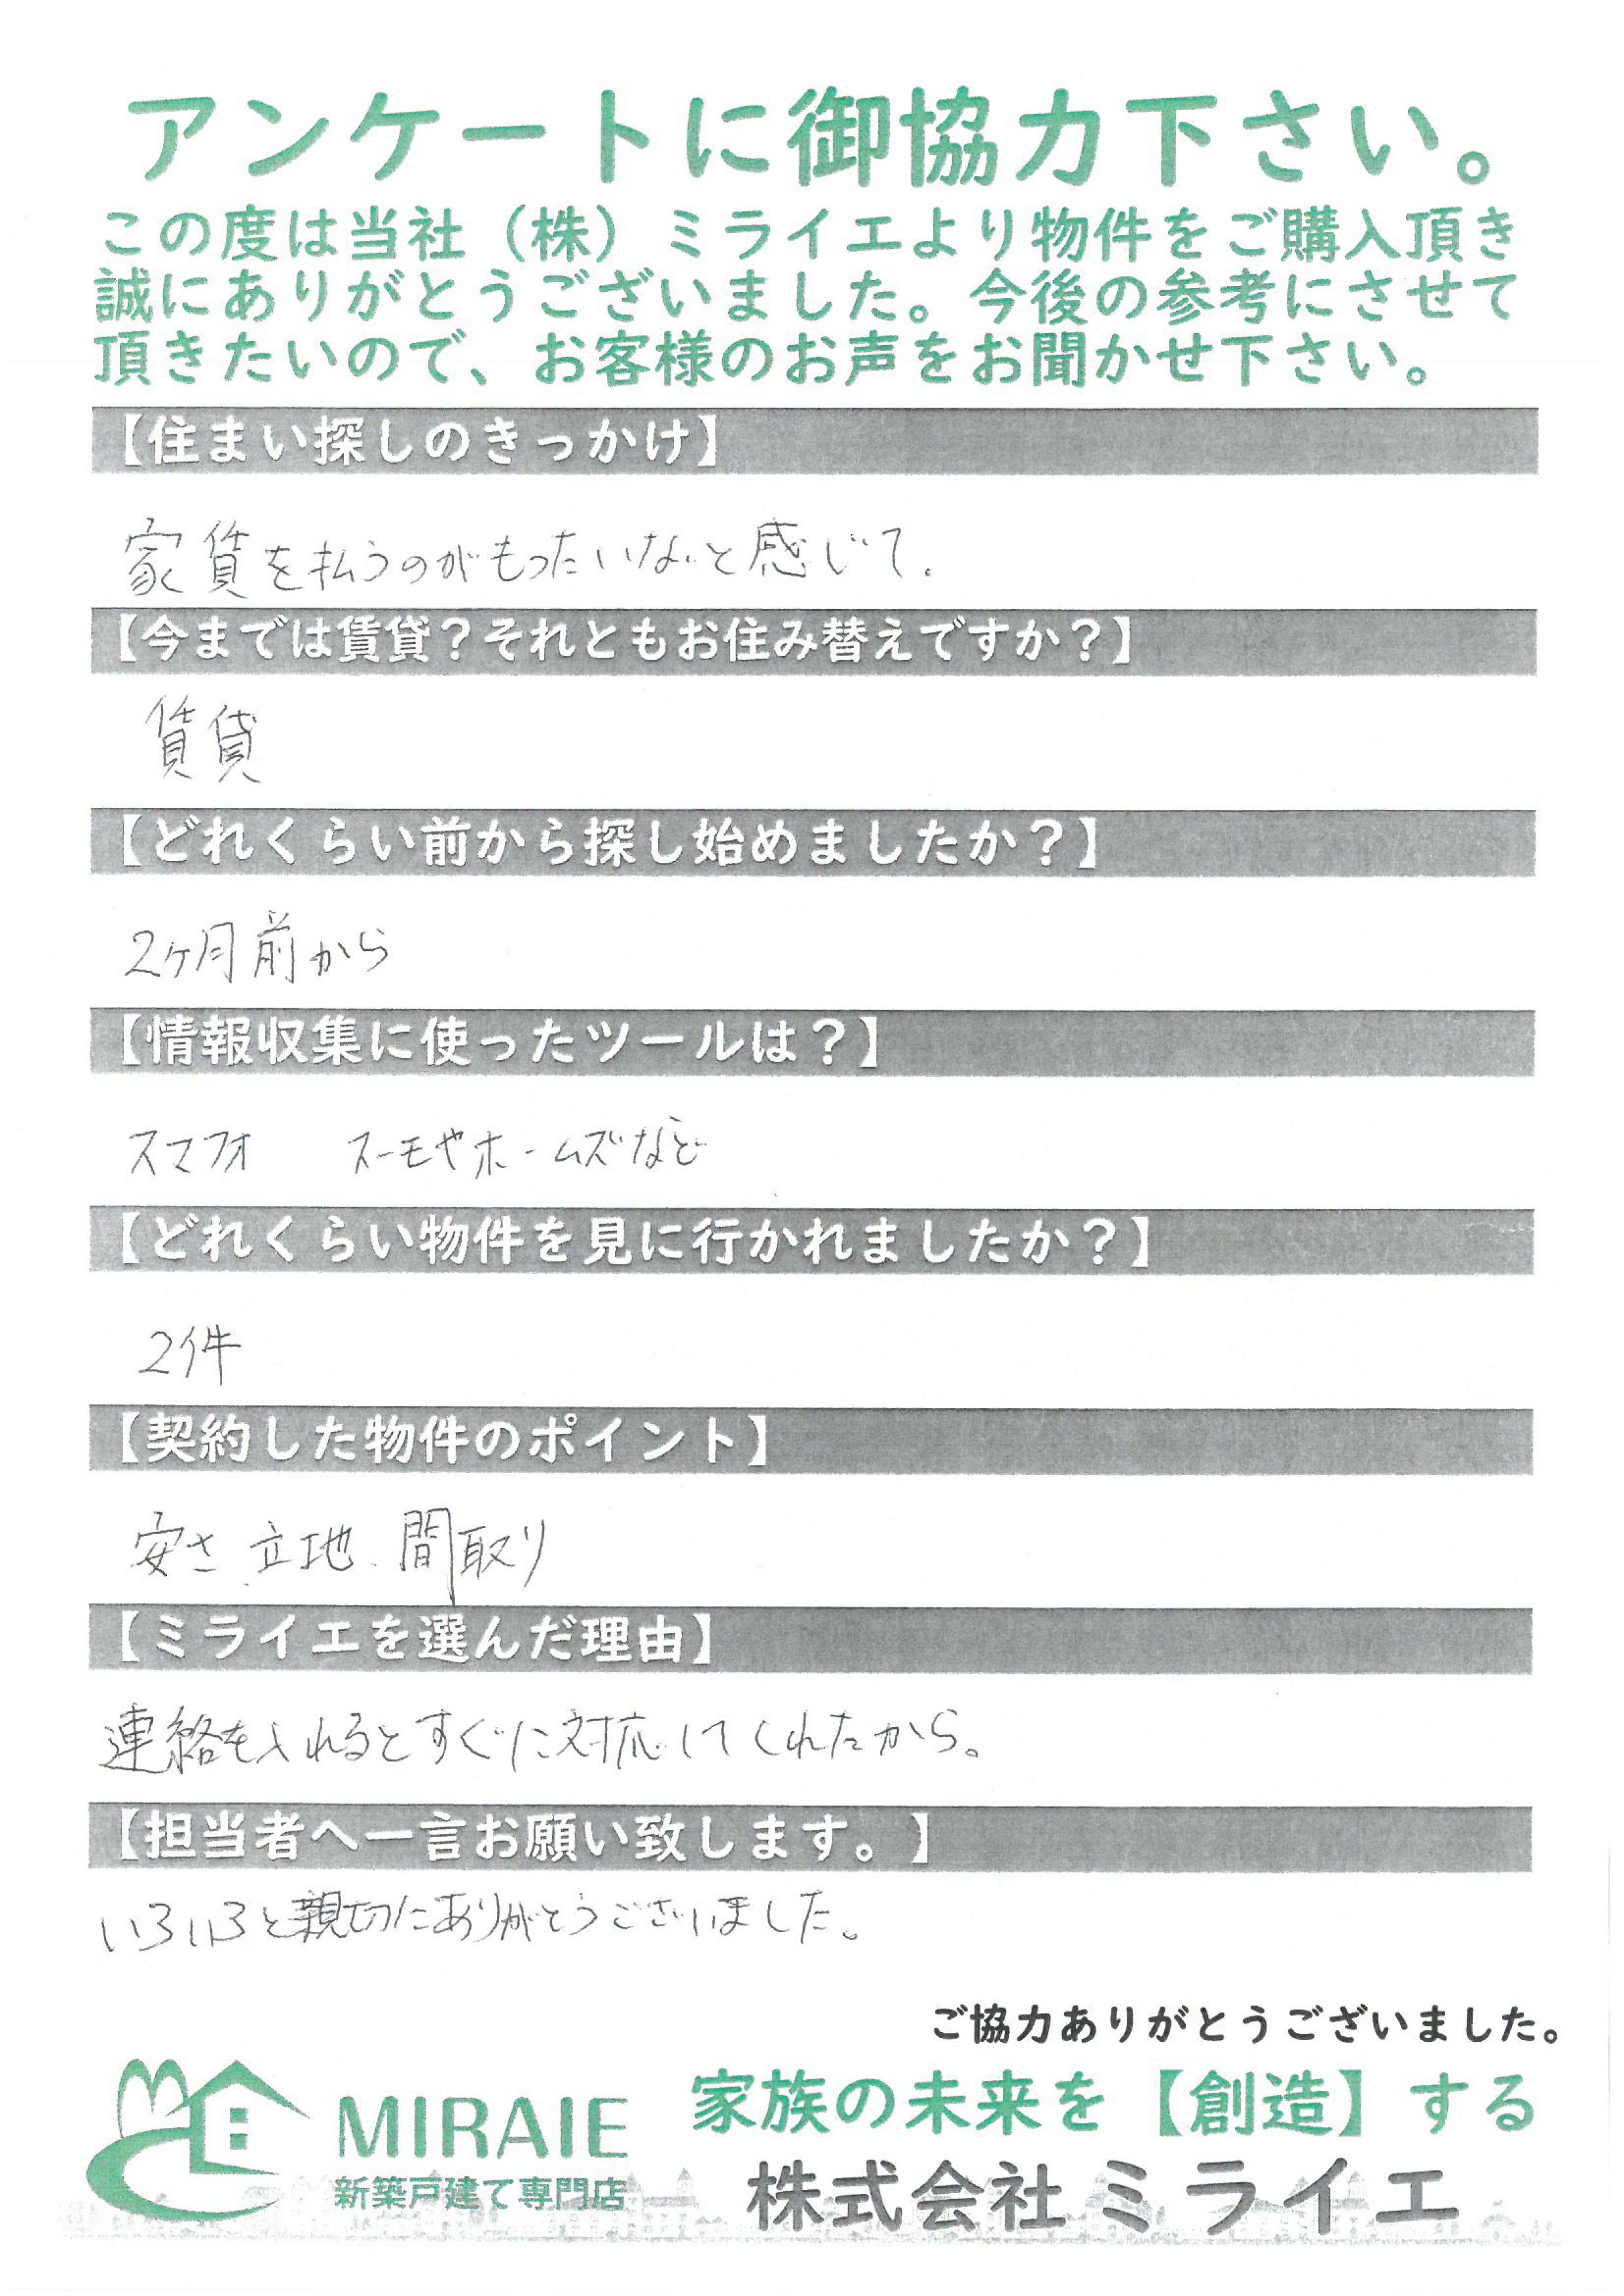 アンケートに御協力下さい。
この度は当社（株）ミライエより物件をご購入頂き
誠にありがとうございました。今後の参考にさせて
頂きたいので、お客様のお声をお聞かせ下さい。
【住まい探しのきっかけ】
家賃を払うのがもったいないと感じて。
【今までは賃貸？それともお住み替えですか？】
賃貸
【どれくらい前から探し始めましたか？】
2ヶ月前から
【情報収集に使ったツールは？】
スマフォ　スーモやホームズなど
【どれくらい物件を見に行かれましたか？】
2件
【契約した物件のポイント】
安さ、立地、間取り
【ミライエを選んだ理由】
連絡を入れるとすぐに対応してくれたから。
【担当者へ一言お願い致します。】
いろいろと親切にありがとうございました。
ご協力ありがとうございました。
MIRAIE
新築戸建て専門店
家族の未来を【創造】する
株式会社ミライエ